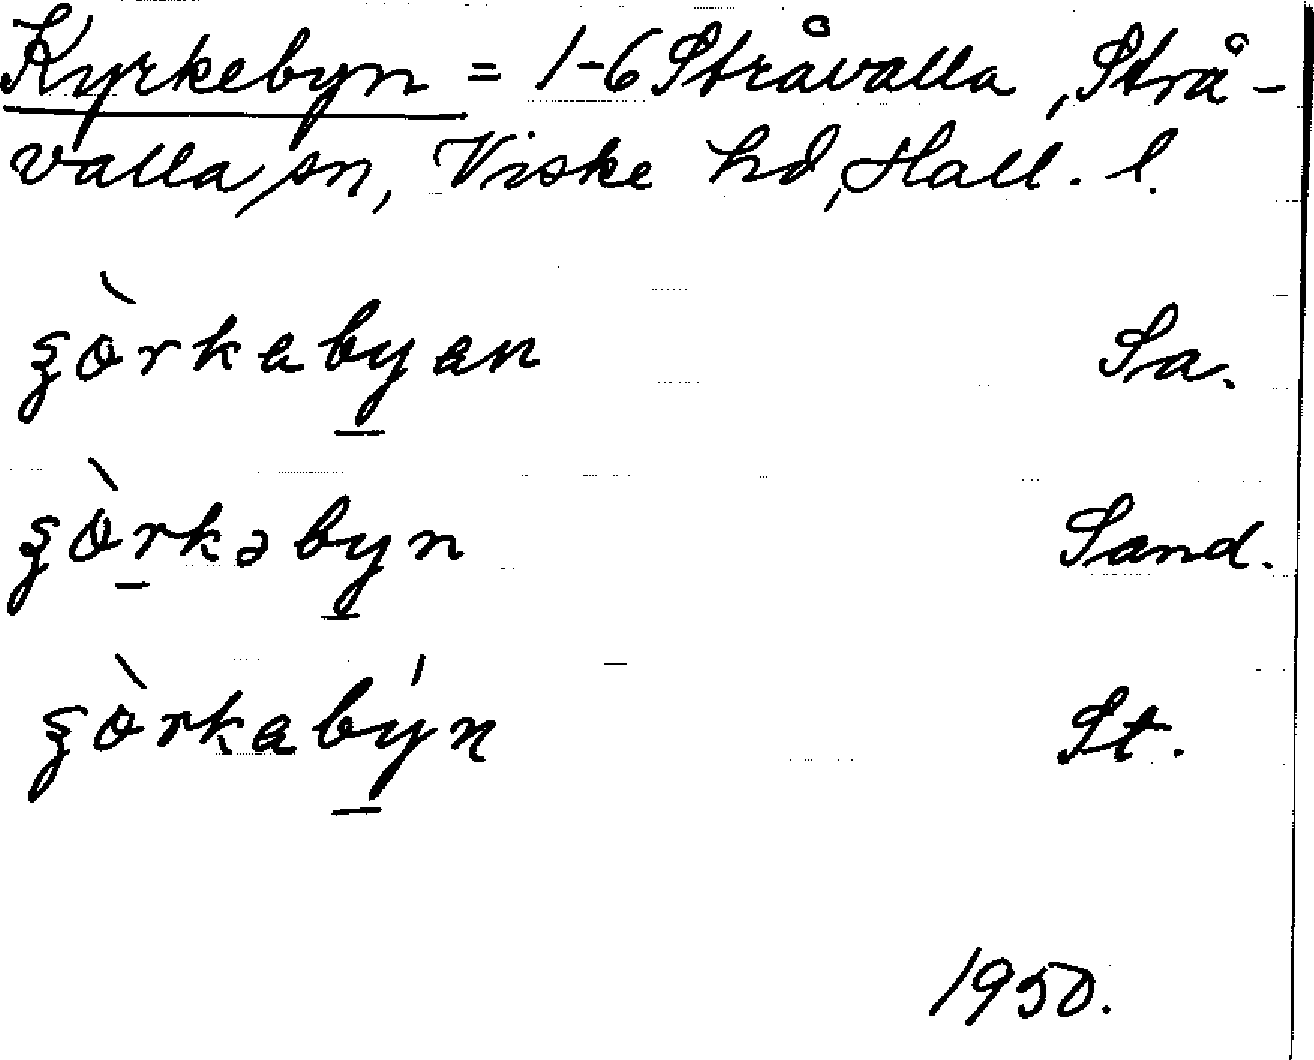 Kyrkebyn = 1-6 Stråvalla, Strå-
valla sn, Viske hd, Hall. l.
ʒòrkabyan Sa.
ʒòrkəbyn Sand.
ʒòrkabýn St.
1950.